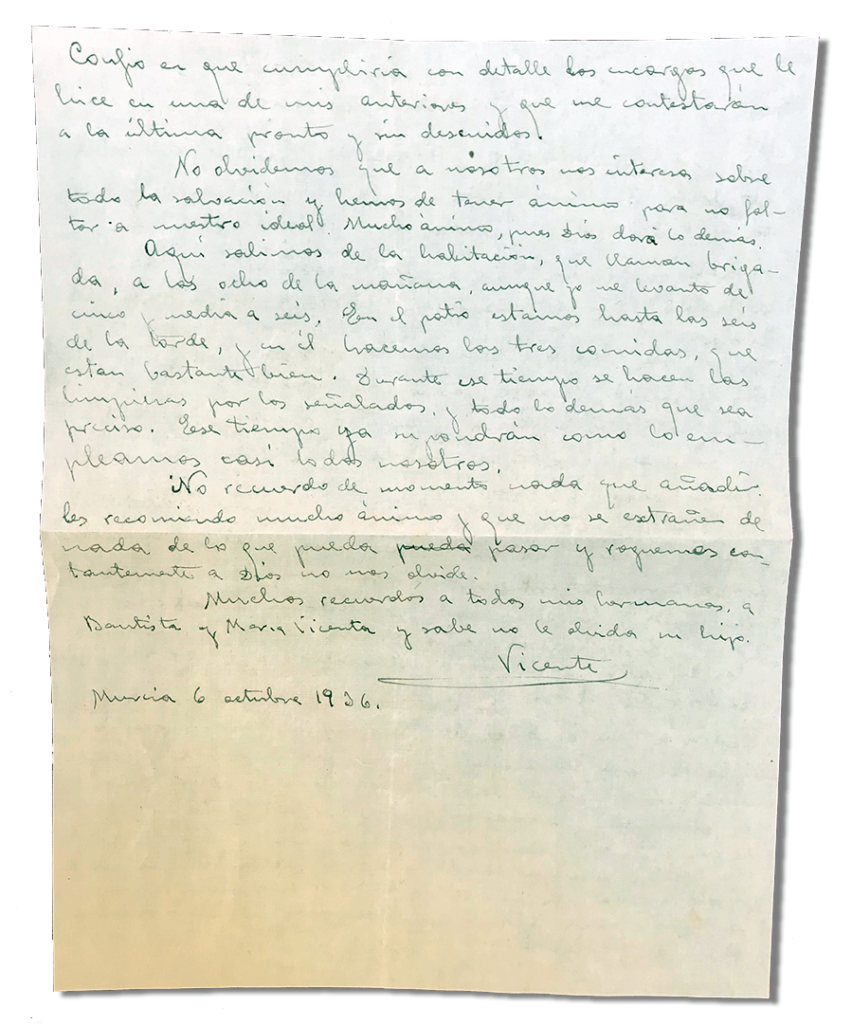 Confio en que cumpliría con detalle los encargos que le
hice en una de mis anteriores y que me contestarán
a la última pronto y sin descuidos.
No olvidemos que a nosotros nos interesa sobre
todo la salvación y hemos de tener ánimo para no fal-
tar a nuestro ideal. Mucho ánimo, pues Dios dará lo demás.
Aquí salimos de la habitación, que llaman briga-
da, a las ocho de la mañana, aunque yo me levanto de
cinco y media a seis. En el patio estamos hasta las seis
de la tarde, y en él hacemos las tres comidas, que
estan bastante bien. Durante ese tiempo se hacen las
limpiezas por los señalados, y todo lo demás que sea
preciso. Ese tiempo ya supondrán como lo em-
pleamos casi todos nosotros.
No recuerdo de momento nada que añadir.
les recomiendo mucho ánimo y que no se extrañen de
nada de lo que pueda pueda pasar y roguemos con-
tantemente a Dios no nos olvide.
Muchos recuerdos a todos mis hermanos, a
Bautista y Maria Vicenta y sabe no le olvida su hijo.
Vicente
Murcia 6 octubre 1936.